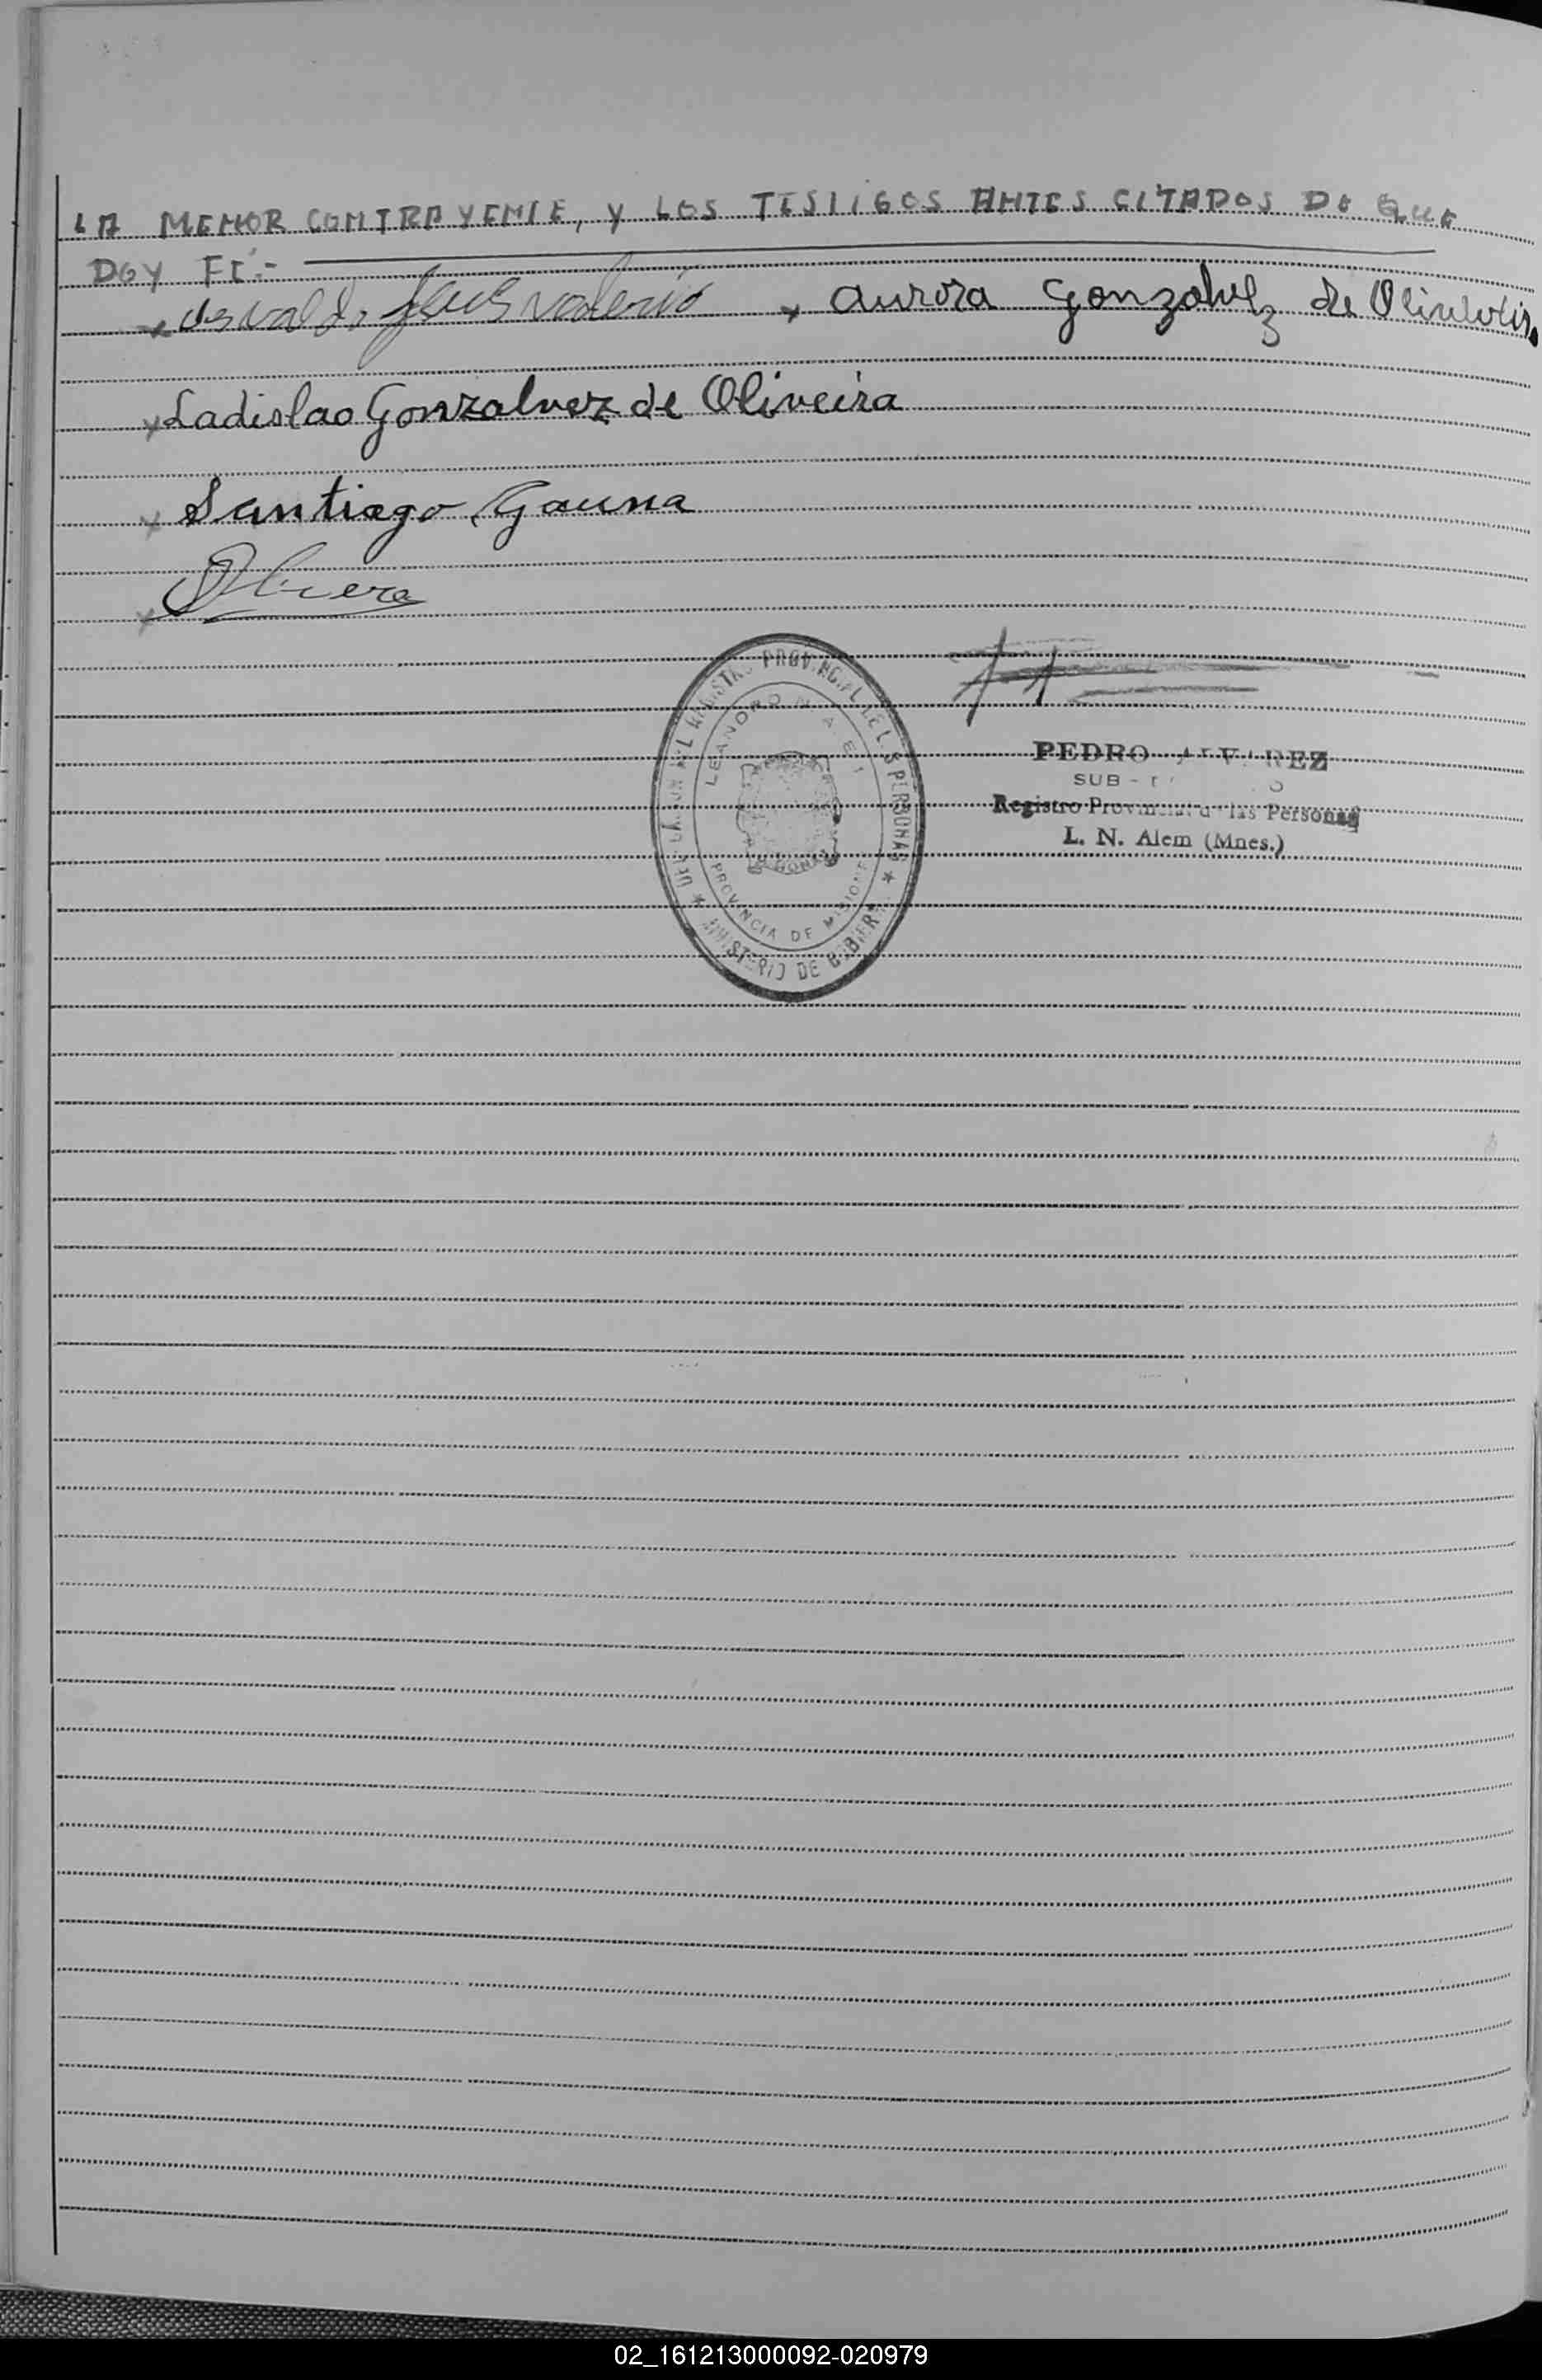 LA MENOR CONTRAYENTE, Y LOS TESTIGOS ANTES CITADOS DE QUE
DOY FE.-
x Osvaldo Jesus Valerio x Aurora Gonzalvez de
x Ladislao Gonzalvez de Oliveira
x Santiago Gauna
x
DEL REGISTRO PROVINCIAL DE LAS PERSONAS
LEANDRO N. ALEM
PROVINCIA DE MISIONES
MINISTERIO DE GOBIERNO
PEDRO ALVAREZ
SUB -
Registro Provincial de las Personas
L. N. Alem (Mnes.)
02_161213000092-020979